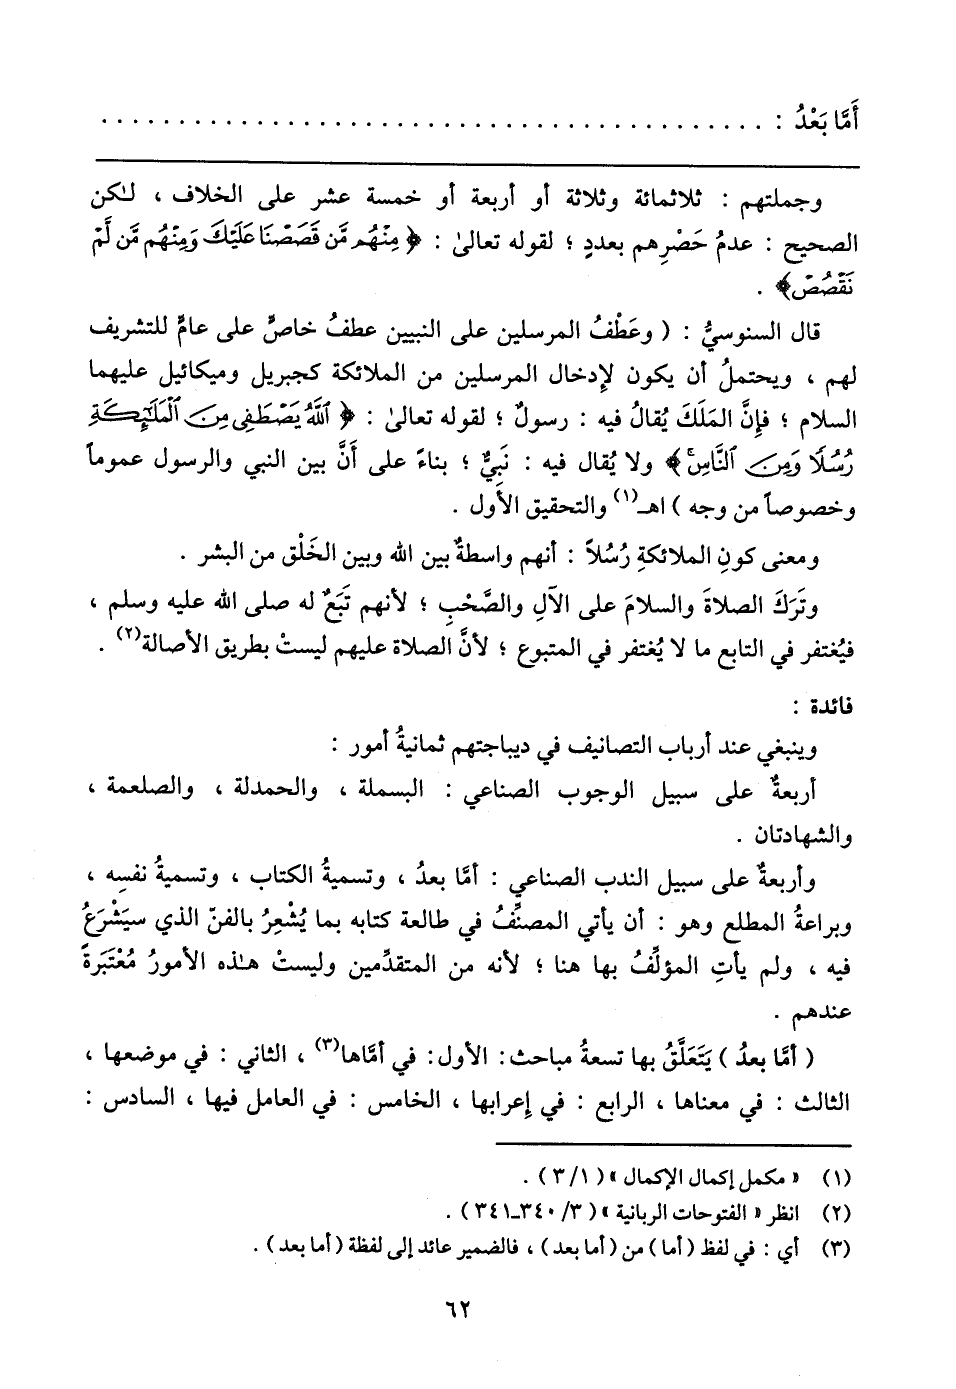 أَمَّا بَعْدُ : . . . . . . . . . . . . . . . . . . . . . . . . . . . . . . . . . . . . . . . . . . . .
وجملتهم : ثلاثمائة وثلاثة أو أربعة أو خمسة عشر على الخلاف ، لـٰكن
الصحيح : عدمُ حَصْرِهم بعددٍ ؛ لقوله تعالىٰ : ﴿ مِنْهُم مَّن قَصَصْنَا عَلَيْكَ وَمِنْهُم مَّن لَّمْ
نَقْصُصْ﴾ .
قال السنوسيُّ : ( وعَطْفُ المرسلين على النبيين عطفُ خاصٍّ على عامٍّ للتشريف
لهم ، ويحتملُ أن يكون لإدخال المرسلين من الملائكة كجبريل وميكائيل عليهما
السلام ؛ فإنَّ المَلَكَ يُقالُ فيه : رسولٌ ؛ لقوله تعالىٰ : ﴿ ٱللَّهُ يَصْطَفِى مِنَ ٱلْمَلَـٰٓئِكَةِ
رُسُلًا وَمِنَ ٱلنَّاسِ ۚ﴾ ولا يُقال فيه : نَبِيٌّ ؛ بناءً على أَنَّ بين النبي والرسول عموماً
وخصوصاً من وجه ) اهـ(١) والتحقيق الأَول .
ومعنى كونِ الملائكةِ رُسُلاً : أنهم واسطةٌ بين الله وبين الخَلْق من البشر .
وتَرَكَ الصلاةَ والسلامَ على الآلِ والصَّحْبِ ؛ لأنهم تَبَعٌ له صلى الله عليه وسلم ،
فيُغتفر في التابع ما لا يُغتفر في المتبوع ؛ لأنَّ الصلاة عليهم ليستْ بطريق الأصالة(٢) .
فائدة :
وينبغي عند أرباب التصانيف في ديباجتهم ثمانيةُ أمور :
أربعةٌ على سبيل الوجوب الصناعي : البسملة ، والحمدلة ، والصلعمة ،
والشهادتان .
وأربعةٌ على سبيل الندب الصناعي : أمَّا بعدُ ، وتسميةُ الكتاب ، وتسميةُ نفسِه ،
وبراعةُ المطلع وهو : أن يأتي المصنِّفُ في طالعة كتابه بما يُشْعِرُ بالفنّ الذي سيَشْرَعُ
فيه ، ولم يأتِ المؤلِّفُ بها هنا ؛ لأنه من المتقدِّمين وليستْ هـٰذه الأمورُ مُعْتَبَرةً
عندهم .
( أمَّا بعدُ ) يَتَعَلَّقُ بها تسعةُ مباحث : الأول : في أمَّاها(٣) ، الثاني : في موضعها ،
الثالث : في معناها ، الرابع : في إعرابها ، الخامس : في العامل فيها ، السادس :
(١) « مكمل إكمال الإكمال » ( ٣/١ ) .
(٢) انظر « الفتوحات الربانية » ( ٣/ ٣٤٠ـ٣٤١ ) .
(٣) أي : في لفظ ( أما ) من ( أما بعد ) ، فالضمير عائد إلى لفظة ( أما بعد ) .
٦٢